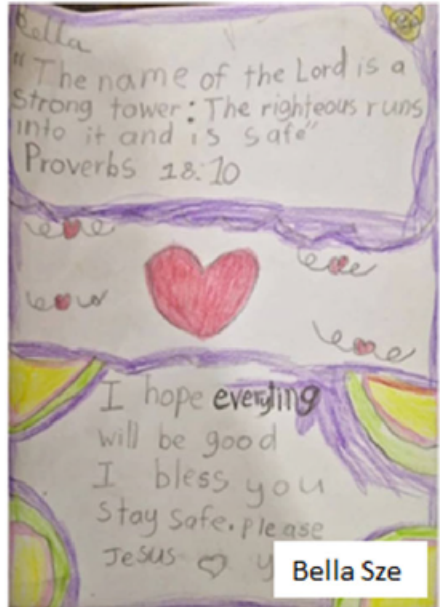 Bella
"The name of the Lord is a
strong tower: The righteous runs
into it and is safe"
Proverbs 18:10
I hope everyting
will be good
I bless you
stay safe. please
Jesus ♡ y
Bella Sze